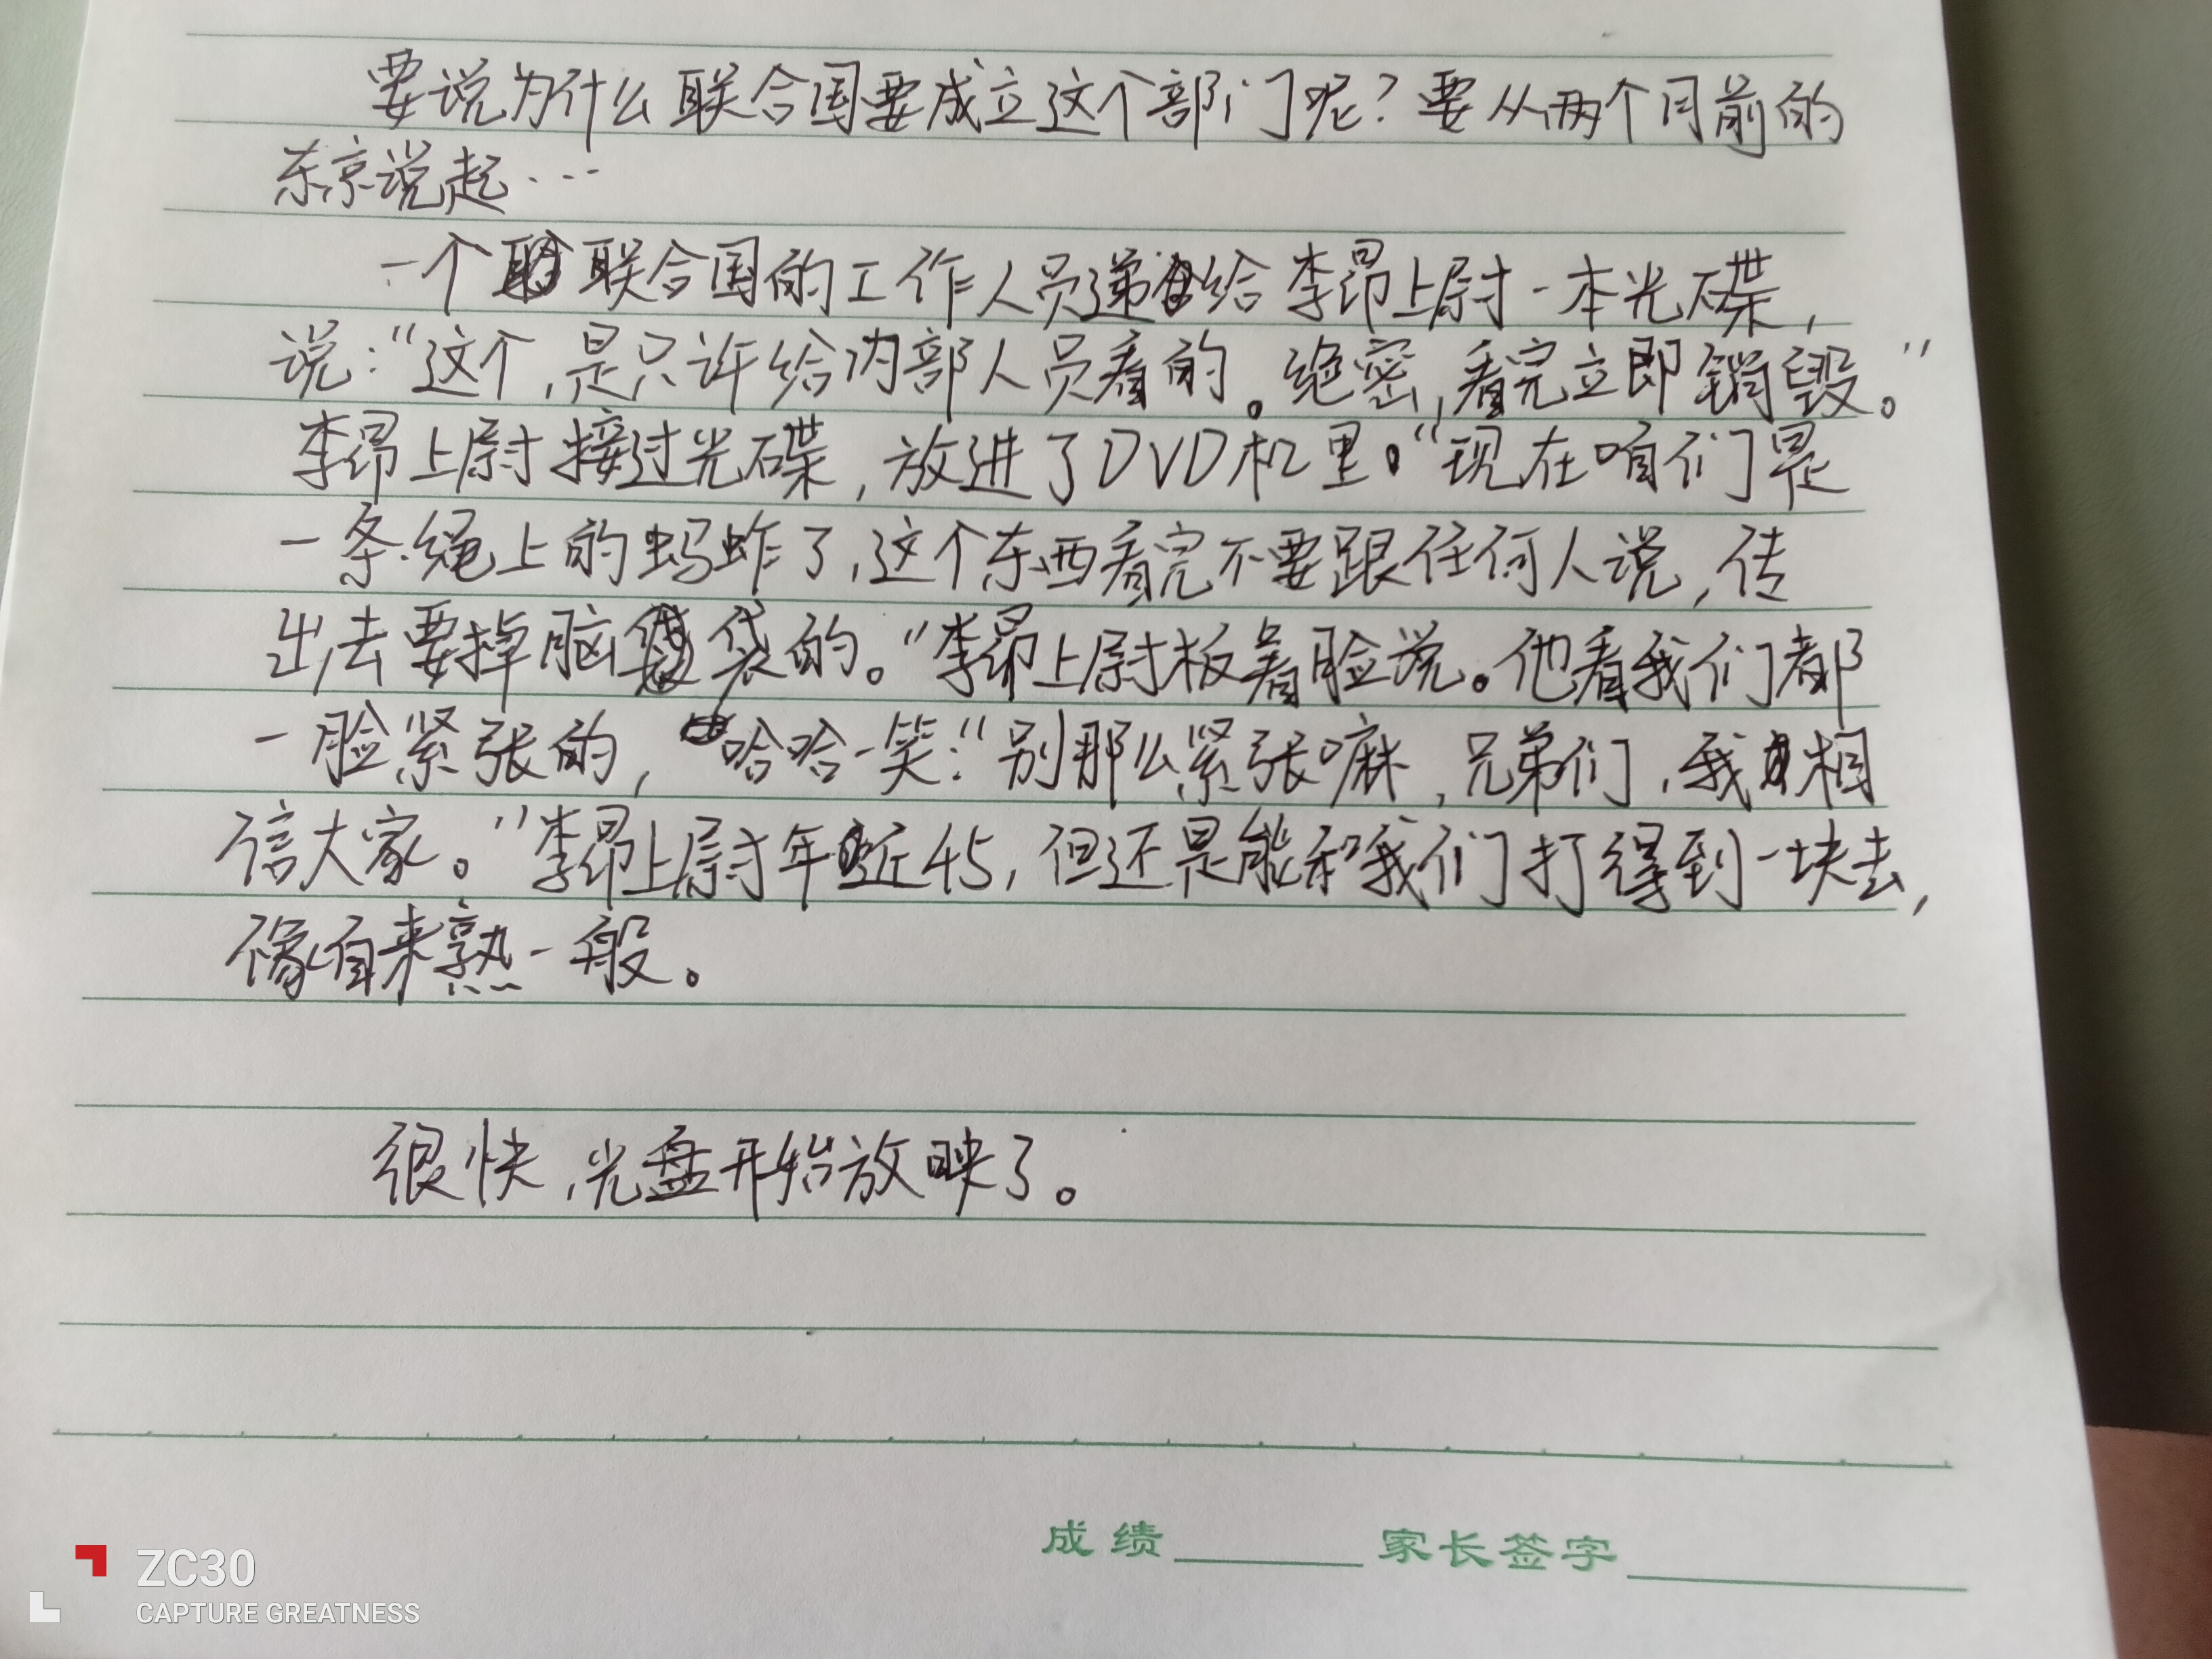 要说为什么联合国要成立这个部门呢？要从两个月前的
东京说起…
一个联合国的工作人员递给李昂上尉一本光碟，
说：“这个，是只许给内部人员看的。绝密，看完立即销毁。”
李昂上尉接过光碟，放进了DVD机里。“现在咱们是
一条绳上的蚂蚱了，这个东西看完不要跟任何人说，传
出去要掉脑袋的。”李昂上尉板着脸说。他看我们都
一脸紧张的，哈哈一笑：“别那么紧张嘛，兄弟们，我相
信大家。”李昂上尉年近45，但还是能和我们打得到一块去，
像自来熟一般。
很快，光盘开始放映了。
成绩 家长签字
ZC30
CAPTURE GREATNESS